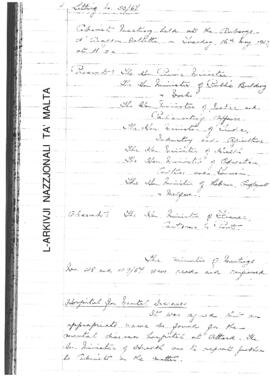 Sitting No. 50/67
Cabinet Meeting held at the Auberge
d'Aragon, Valletta, on Tuesday 16th May 1967
at
Present: The Hon. Prime Minister
The Hon. Minister of Public Building
& Works
The Hon. Minister of Justice and
Parliamentary Affairs
The Hon. Minister of Trade,
Industry and Agriculture
The Hon. Minister of Health
The Hon. Minister of Education,
Culture and Tourism
The Hon. Minister of Labour, Employment
& Welfare
Absent: The Hon. Minister of Finance,
Customs & Port
The minutes of Meetings
Nos 48 and 49/67 were read and confirmed
Hospital for Mental Diseases
It was agreed that an
appropriate name be found for the
mental diseases hospital at Attard. The
Hon. Minister of Health was to report further
to Cabinet on the matter.
L-ARKIVJI NAZZJONALI TA' MALTA